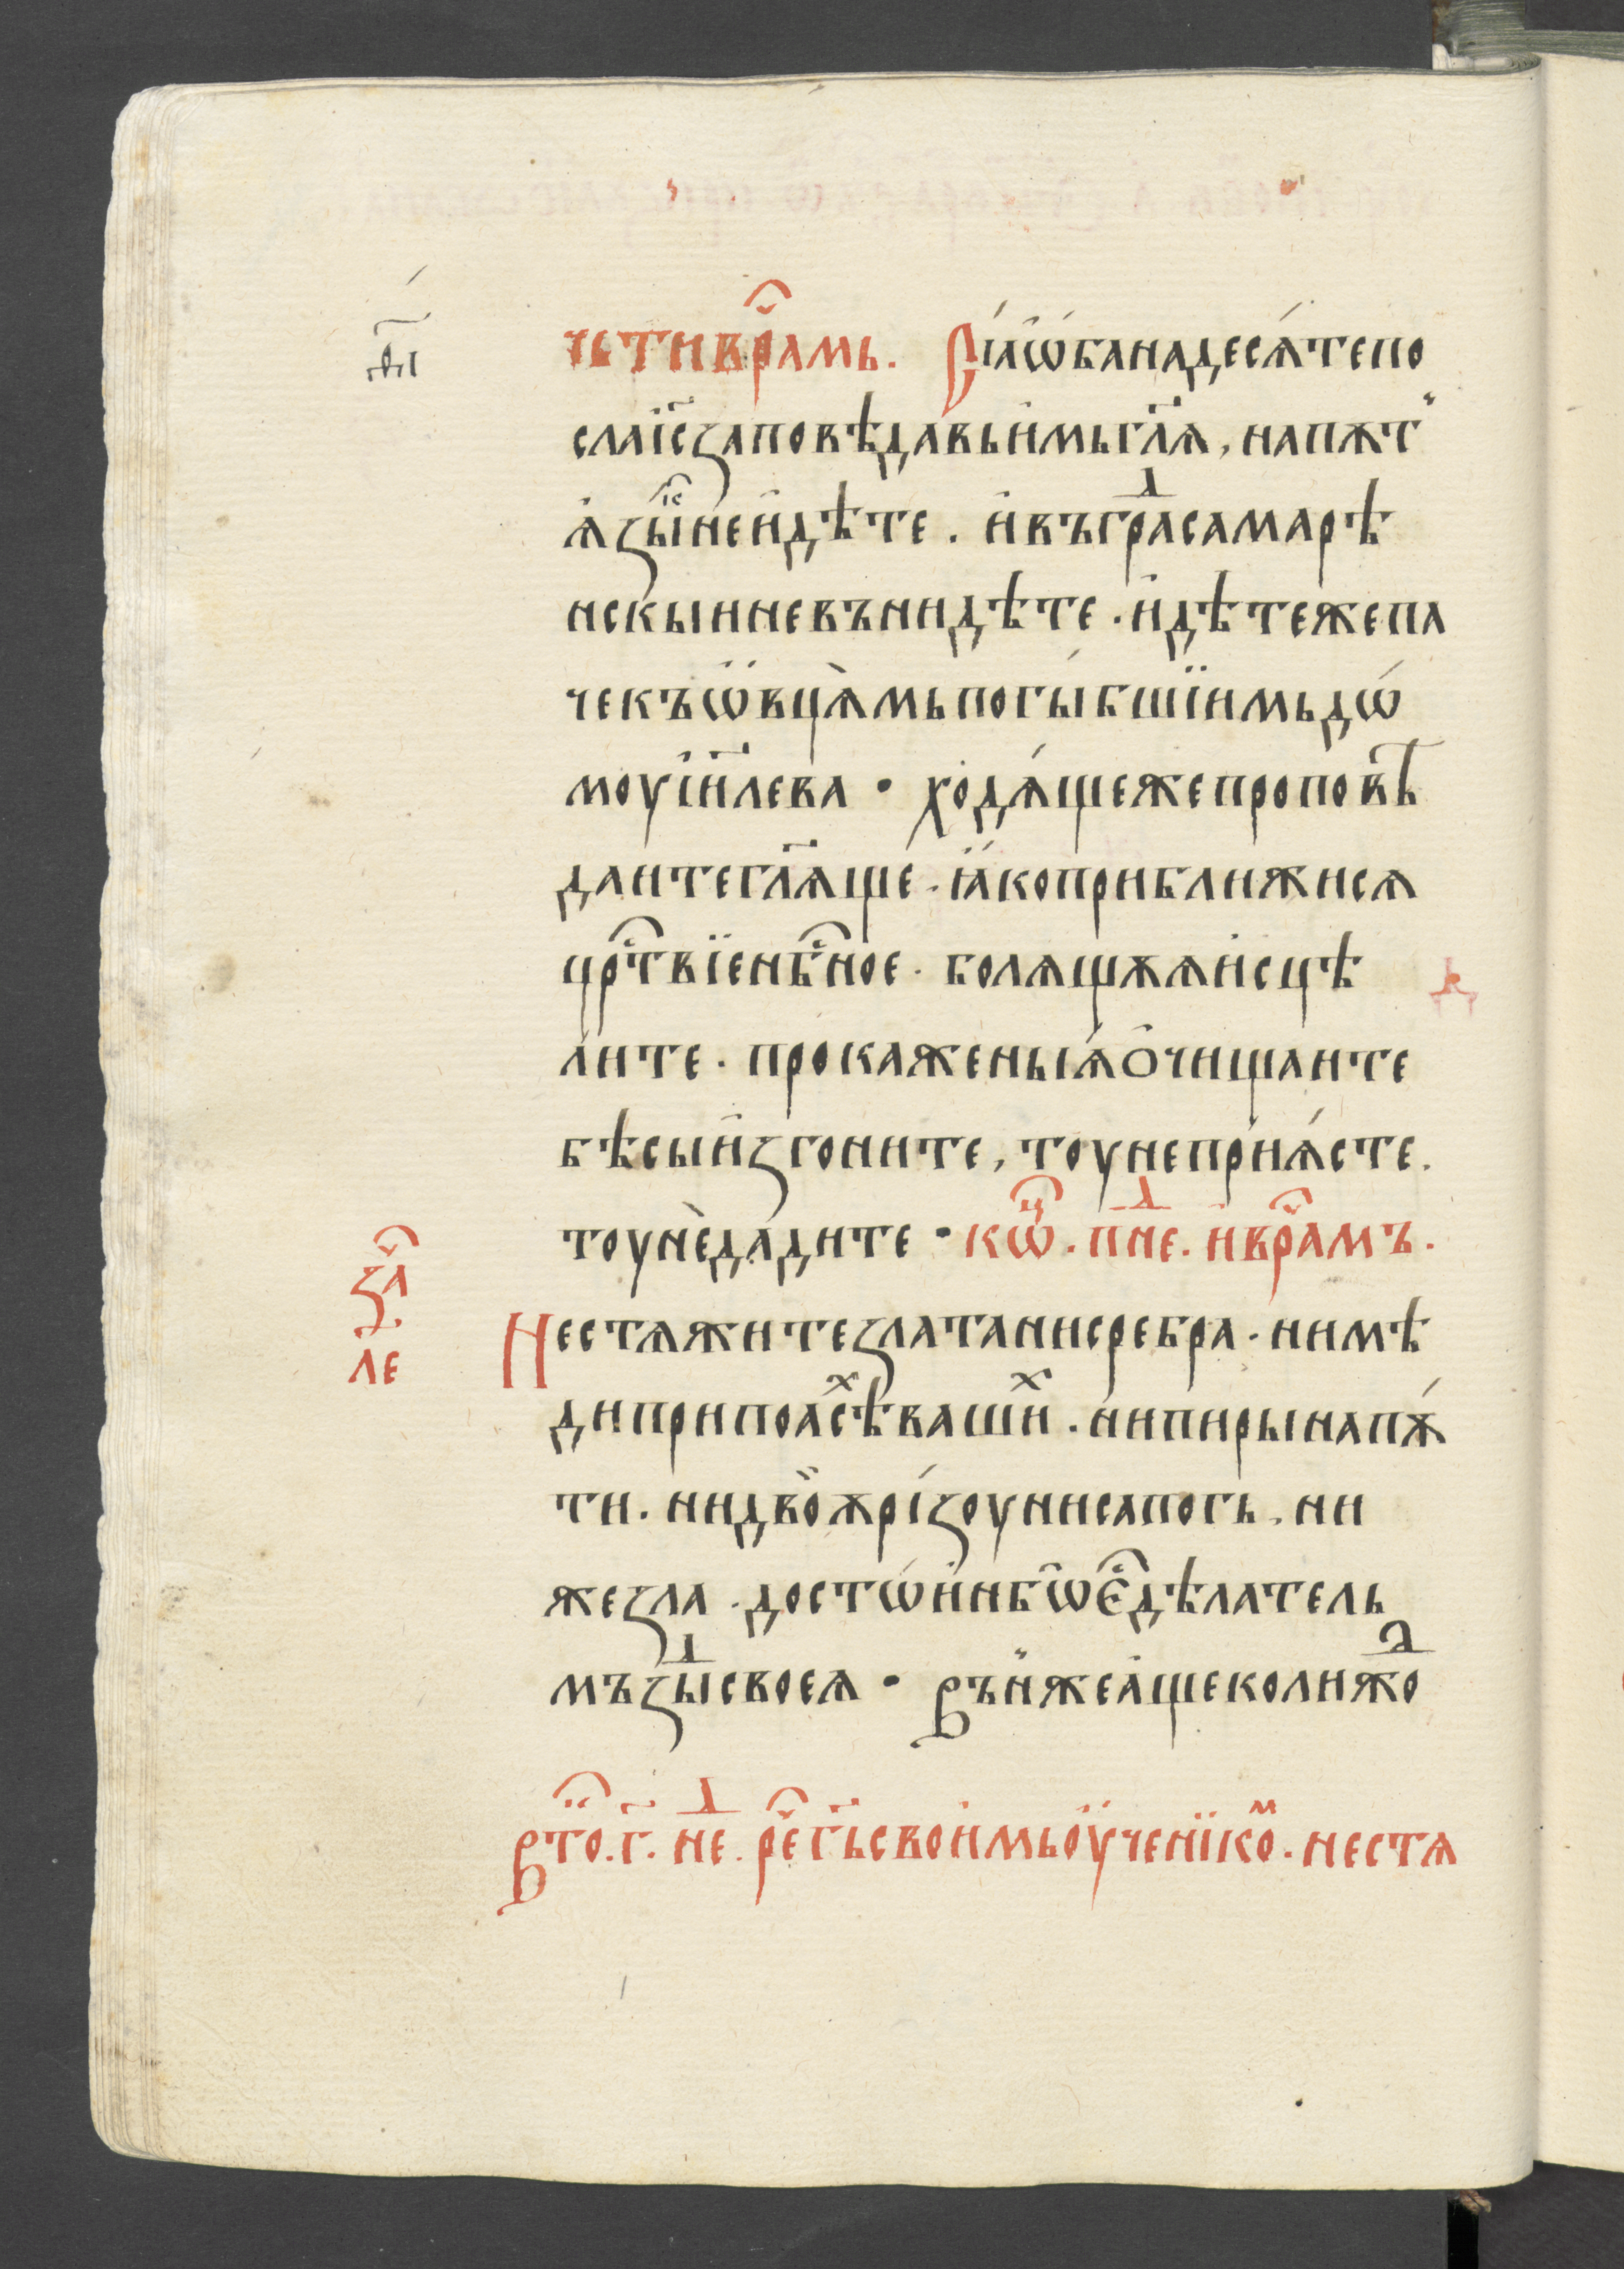 чьтивра́мь. Сїаѡ҆банадесѧ́тепо
слаі҆с҃заповѣдавьи҆мьгл҃ѧ, напѫт
ѧ҆зы҆кⷭ҇неи҆дѣте. и҆въграⷣсамарѣ
нскыиневънидѣте. и҆дѣтежепа
чекъѡ҆вцѧ̀мьпогы́бшїимьдѡ́
моуі҆и҃лева. ходѧ́щежепроповѣ
даитегл҃ѧще. ꙗ҆коприближисѧ
црⷭ҇твїенбⷭ҇ное. болѧщѫѧи҆сцѣ
лите. прокаженыѧ҆ѻ҆чищаите
бѣсыи҆згоните, тоунепрїѧ́сте.
тоунѐдади́те. кѡⷰ҇. пⷩ҇е. и҆вра́мъ.
заⷱ҇
ле
Нестѧжитезлатанисребра. нимѣ
диприпоасѣⷯвашиⷯ. нипирынапѫ
ти. нидво̀ѫрі́зоунисапогь, ни
жезла. досто́и҆нбѡе҆ⷭ҇дѣлатель
мъзⷣысвоеѧ. Въньжеа҆щеколижⷣо
Вто. г҃. нⷣе. реⷱ҇ г҃ьсвои҆мьоу҆ченїкоⷨ. нестѧ